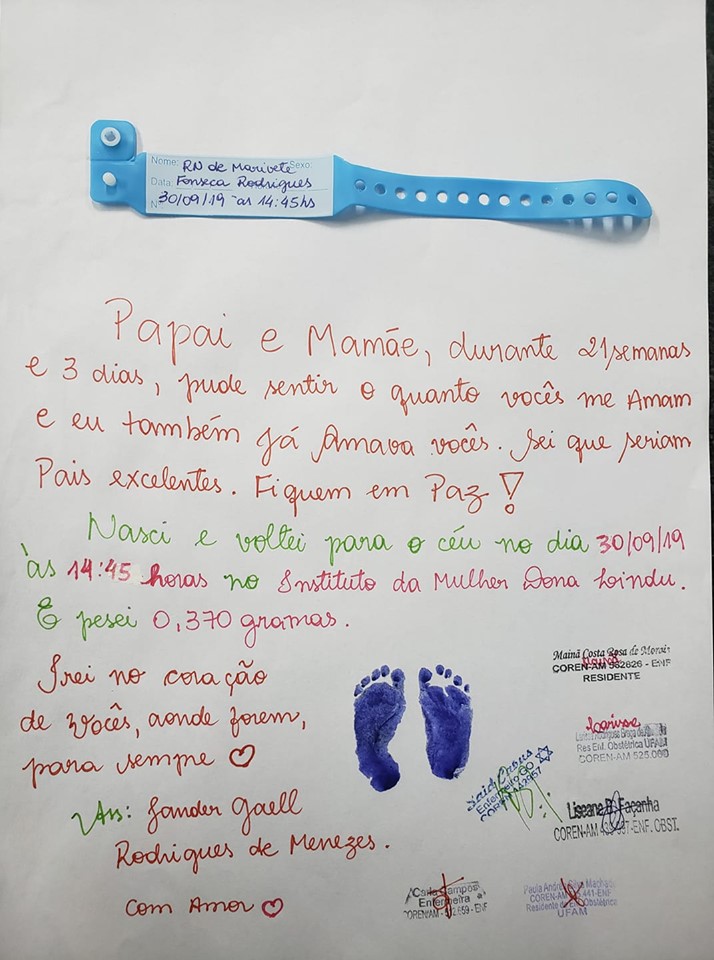 Nome: RN de Marivete Sexo:
Data: Fonseca Rodrigues
N 30/09/19 às 14:45hs
Papai e Mamãe, durante 21 semanas
e 3 dias, pude sentir o quanto vocês me Amam
e eu também já Amava vocês. Sei que seriam
Pais excelentes. Fiquem em Paz!
Nasci e voltei para o céu no dia 30/09/19
às 14:45 horas no Instituto da Mulher Dona Lindu.
E pesei 0,370 gramas.
Irei no coração
de vocês, aonde forem,
para sempre ♡
Ass: Jander Gaell
Rodrigues de Menezes.
Com Amor ♡
Mainã Costa Rosa de Morais
COREN-AM 562626 - ENF
RESIDENTE
Larisse
Res Enf. Obstétrica UFAM
COREN-AM 525.060
Enfermeiro
COREN
Liseane B. Façanha
COREN-AM -ENF. OBST.
Carla Campos
Enfermeira
COREN/AM - 659 - ENF
Paula Silva Machado
COREN-AM 441-ENF
Residente Obstétrica
UFAM